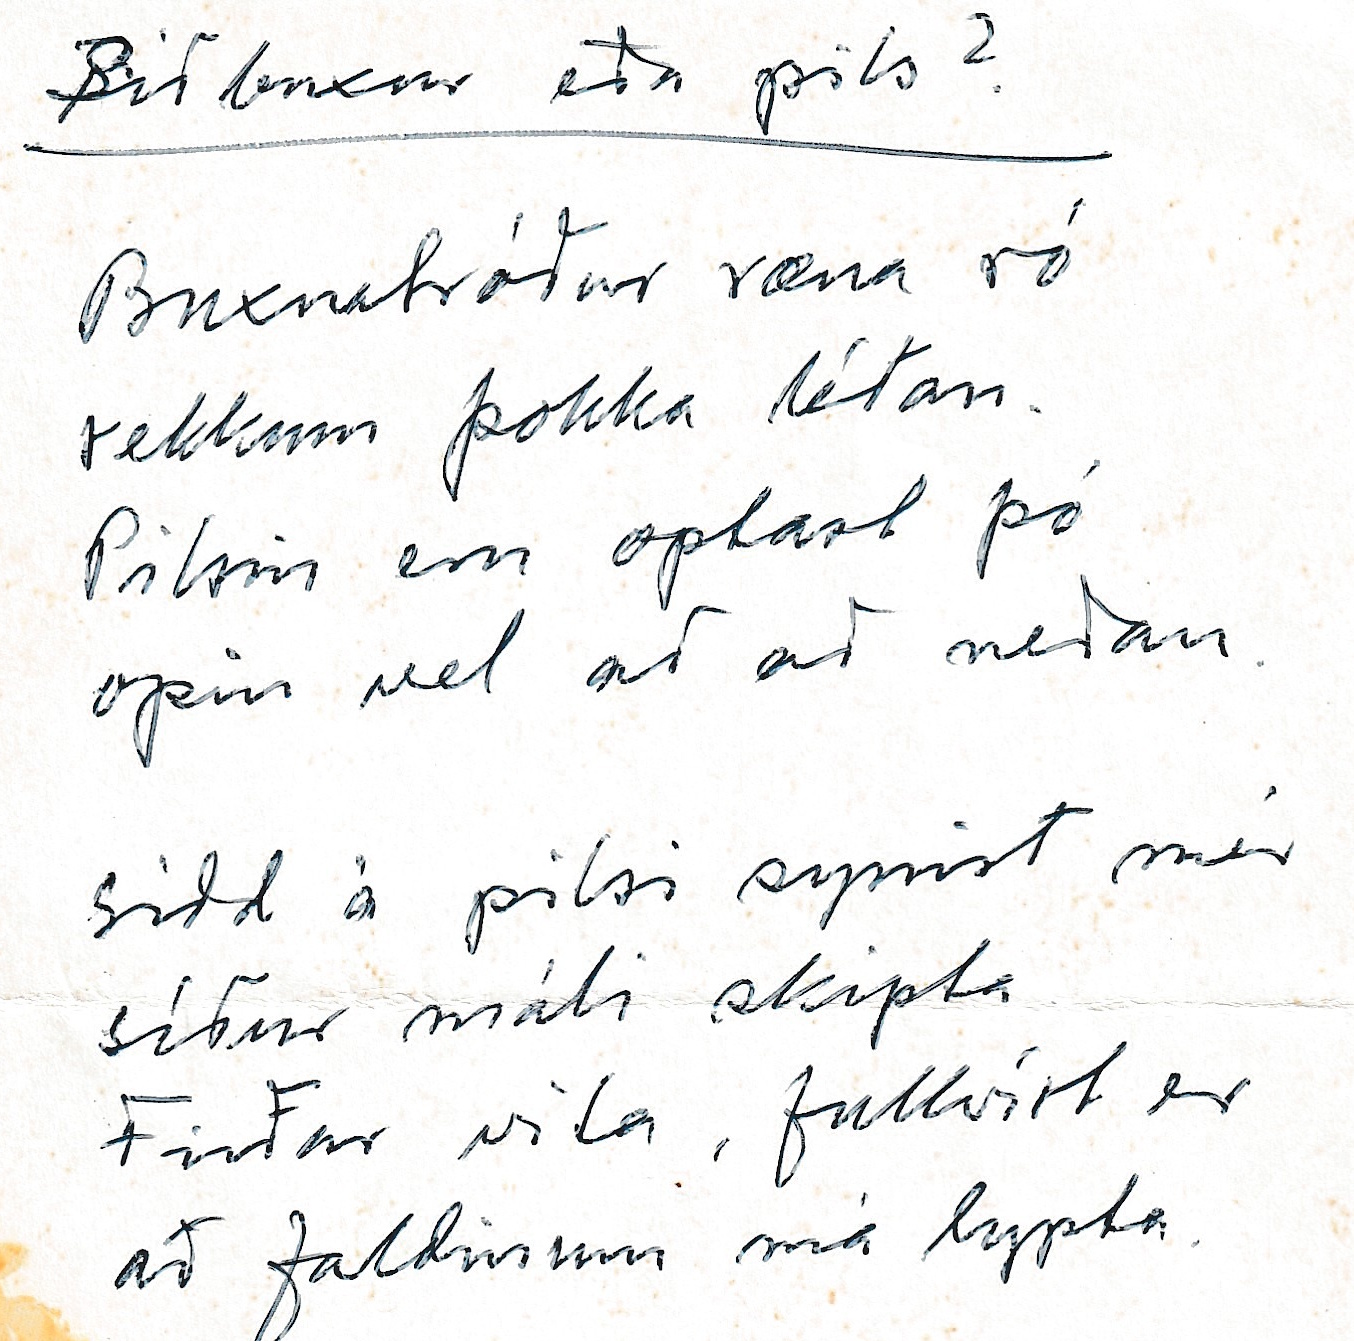 Siðbuxur eða pils?
Buxnatróður ræna ró
rekkum þokka léðan.
Pilsin eru optast þó
opin vel að að neðan.
sidd á pilsi synist mér
síður máli skipta
Firðar vita, fullvíst er
að faldinum má lypta.